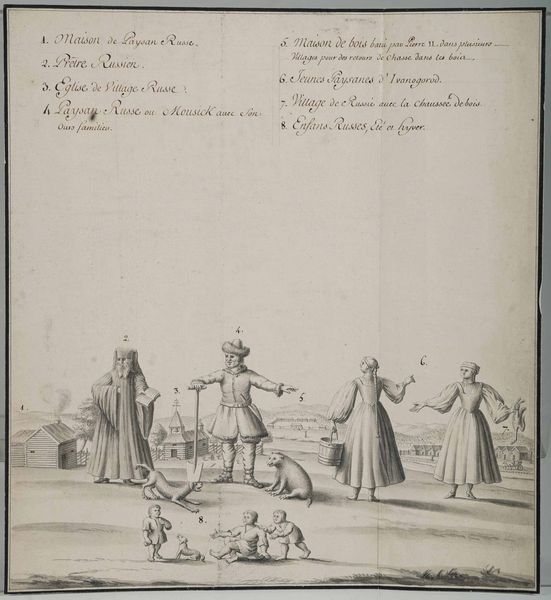 1. Maison de Paysan Russe.
2. Prêtre Russien.
3. Eglise de Village Russe.
4. Paysan Russe ou Mousick avec Son
Ours familier.
5. Maison de bois bati par Pierre II. dans plusieurs
Villages pour des retours de Chasse dans les bois.
6. Jeunes Paysanes d'Ivanogorod.
7. Village de Russie avec la Chaussée de bois.
8. Enfans Russes, Eté et hyver.
2.
4.
6.
3.
5.
1.
7.
8.